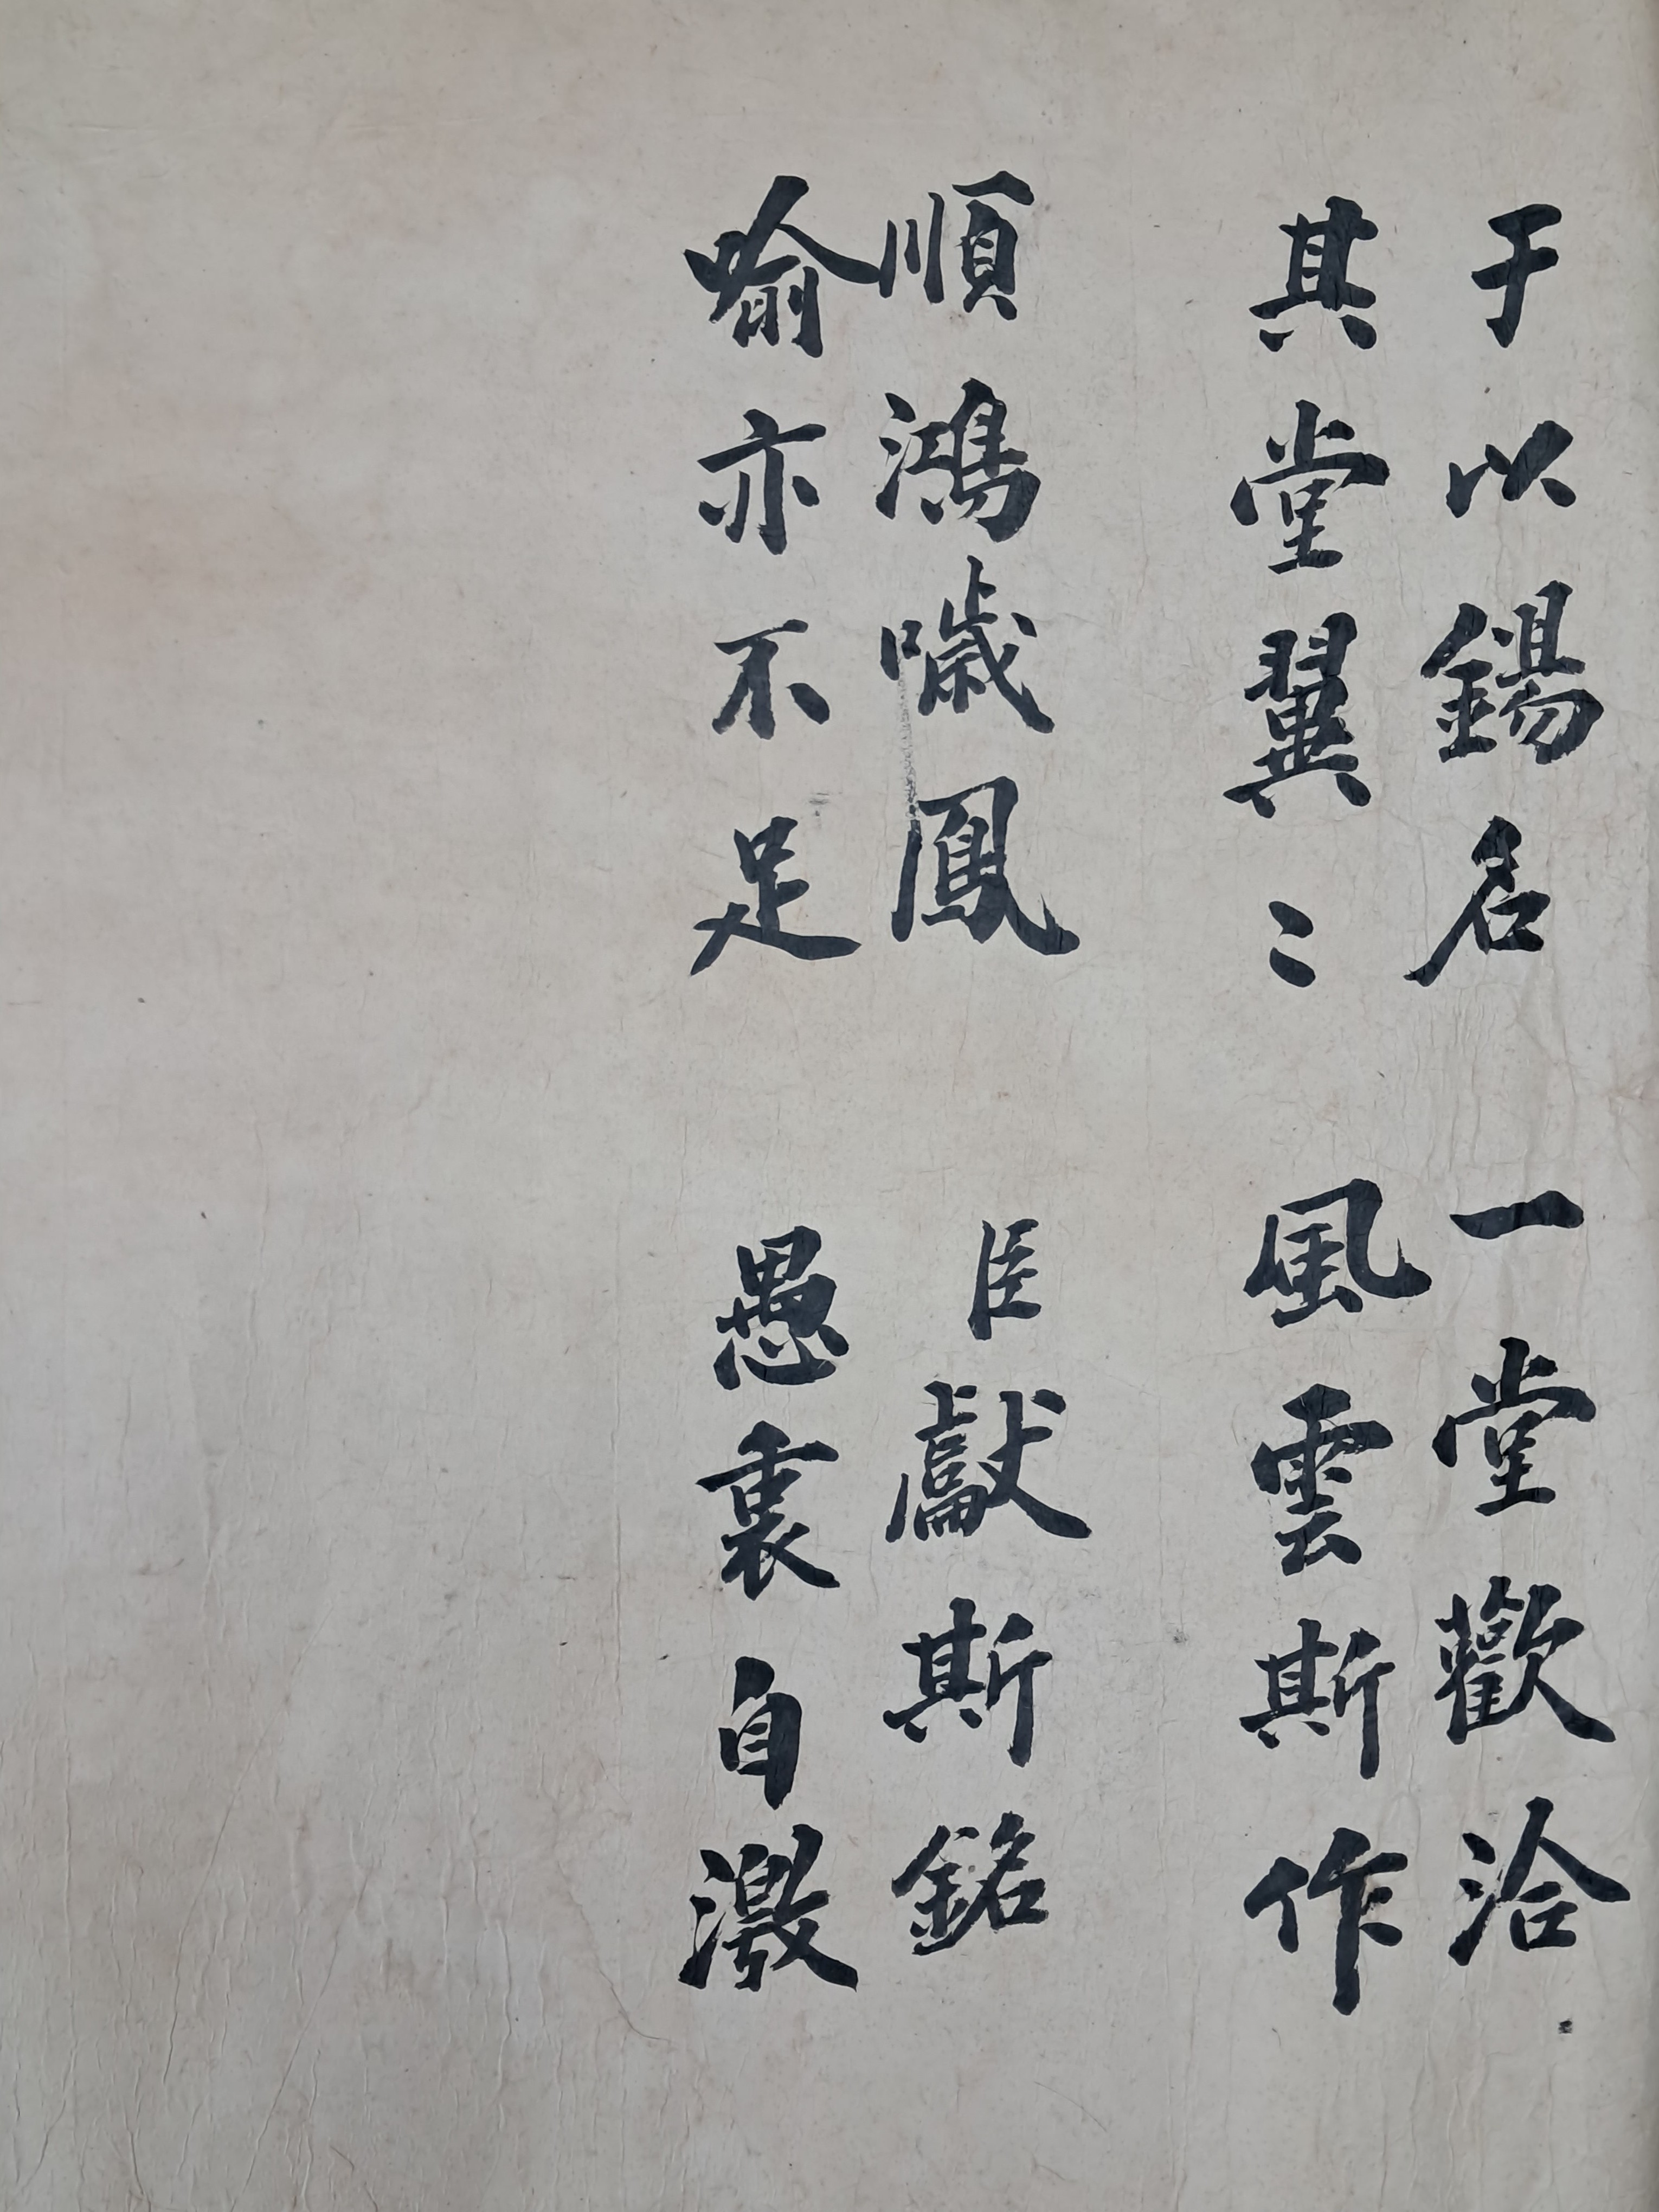 于以錫名 一堂歡洽
其堂翼〻 風雲斯作
順鴻噦鳳 臣獻斯銘
喻亦不足 愚裏自激